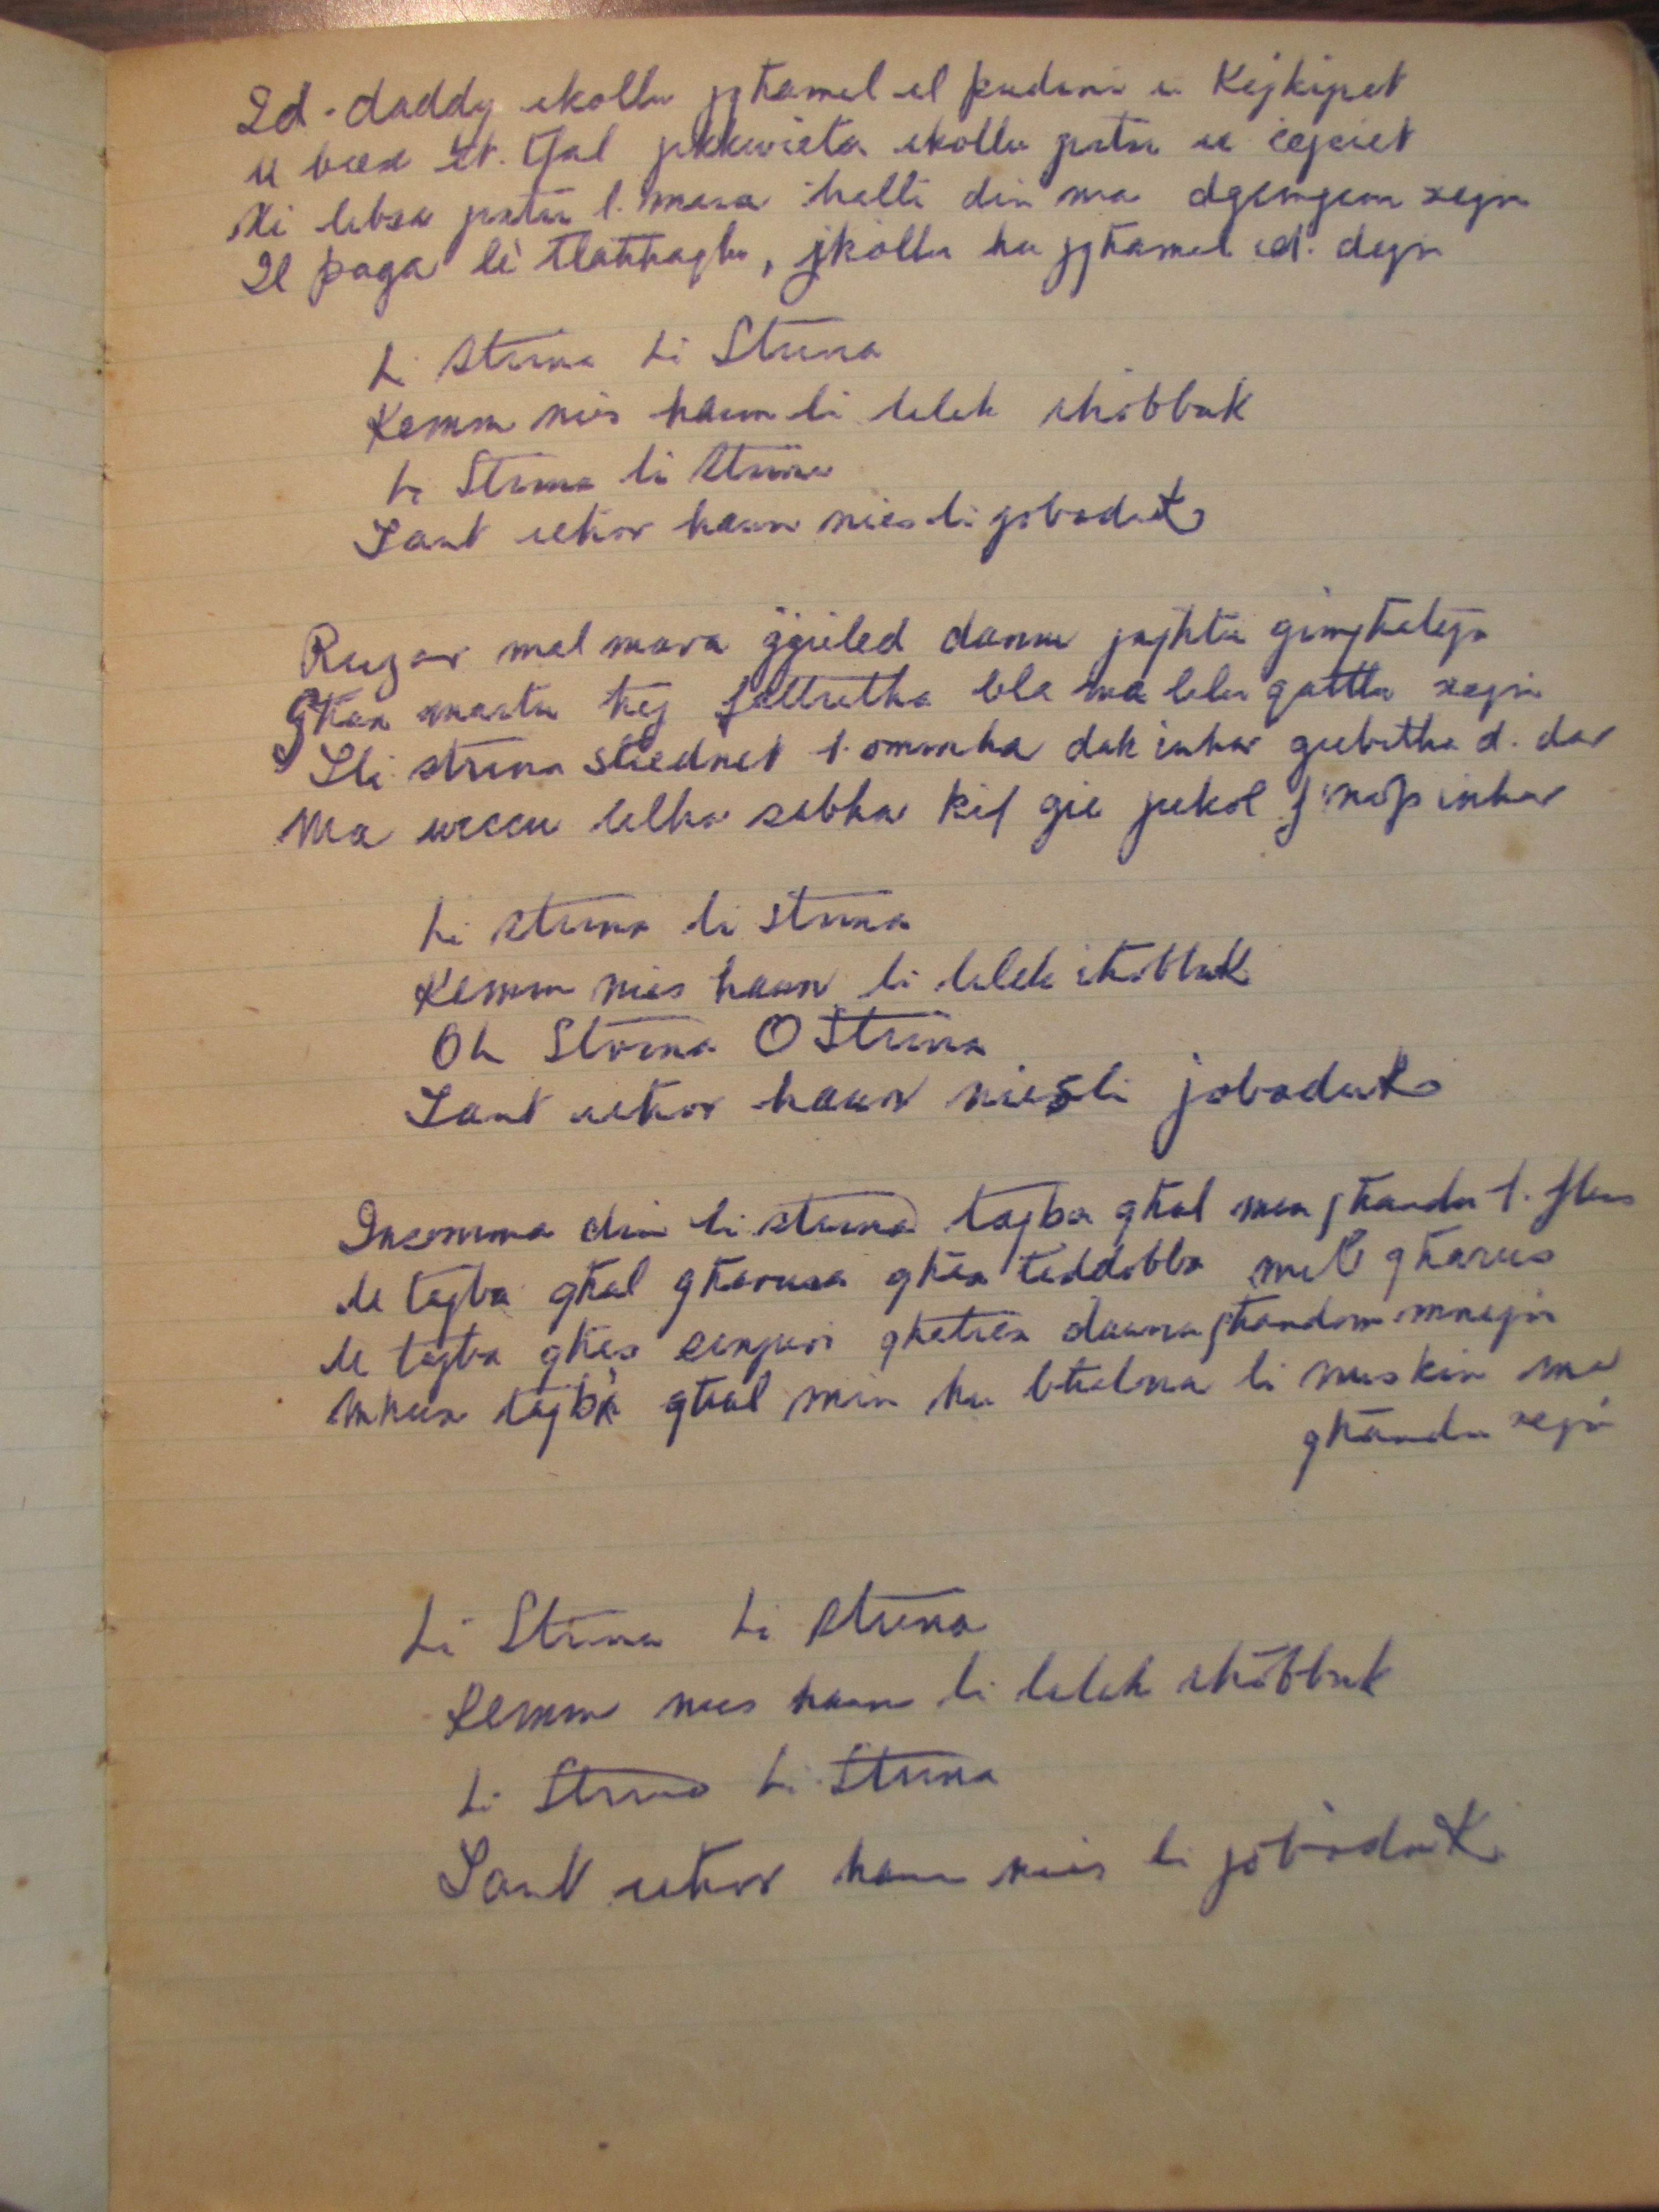 Id-daddy ikollu jgħamel il pudina u Kejkijiet
u biex it-tfal jikkwieta ikollu jixtri u ċejċiet
Xi libsa jixtri l. mara ħalli din ma dgemgem xejn
Il paga li tlaħħaqlu, jkollu hu jgħamel id. dejn
Li Strina Li Strina
Kemm nies hawn li lilek iħobbuk
Li Strina li Strina
Izant iehor hawn nies li joboduk
Ruzar mal mara ġġieled dannu jagħtu ginghalejn
Għax martu hej ftit ma lilu qattu xejn
Illi strina stiednet l. ommha dak inhar giebitha d. dar
Ma wiccu lilha sabha kif gie jiekol f'nofs inhar
Li strina li strina
Kemm nies hawn li lilek iħobbuk
Oh Strina O Strina
Izant iehor hawn nies li joboduk
Insomma din li strina tajba għal min għandu l. flus
U tajba għal għarusa għax tiddobba mill għarus
U tajba għax
Mhux tajba għal min hu btalna li miskin ma
għandu xejn
Li Strina Li Strina
Kemm nies hawn li lilek iħobbuk
Li Strina Li Strina
Izant iehor hawn nies li joboduk